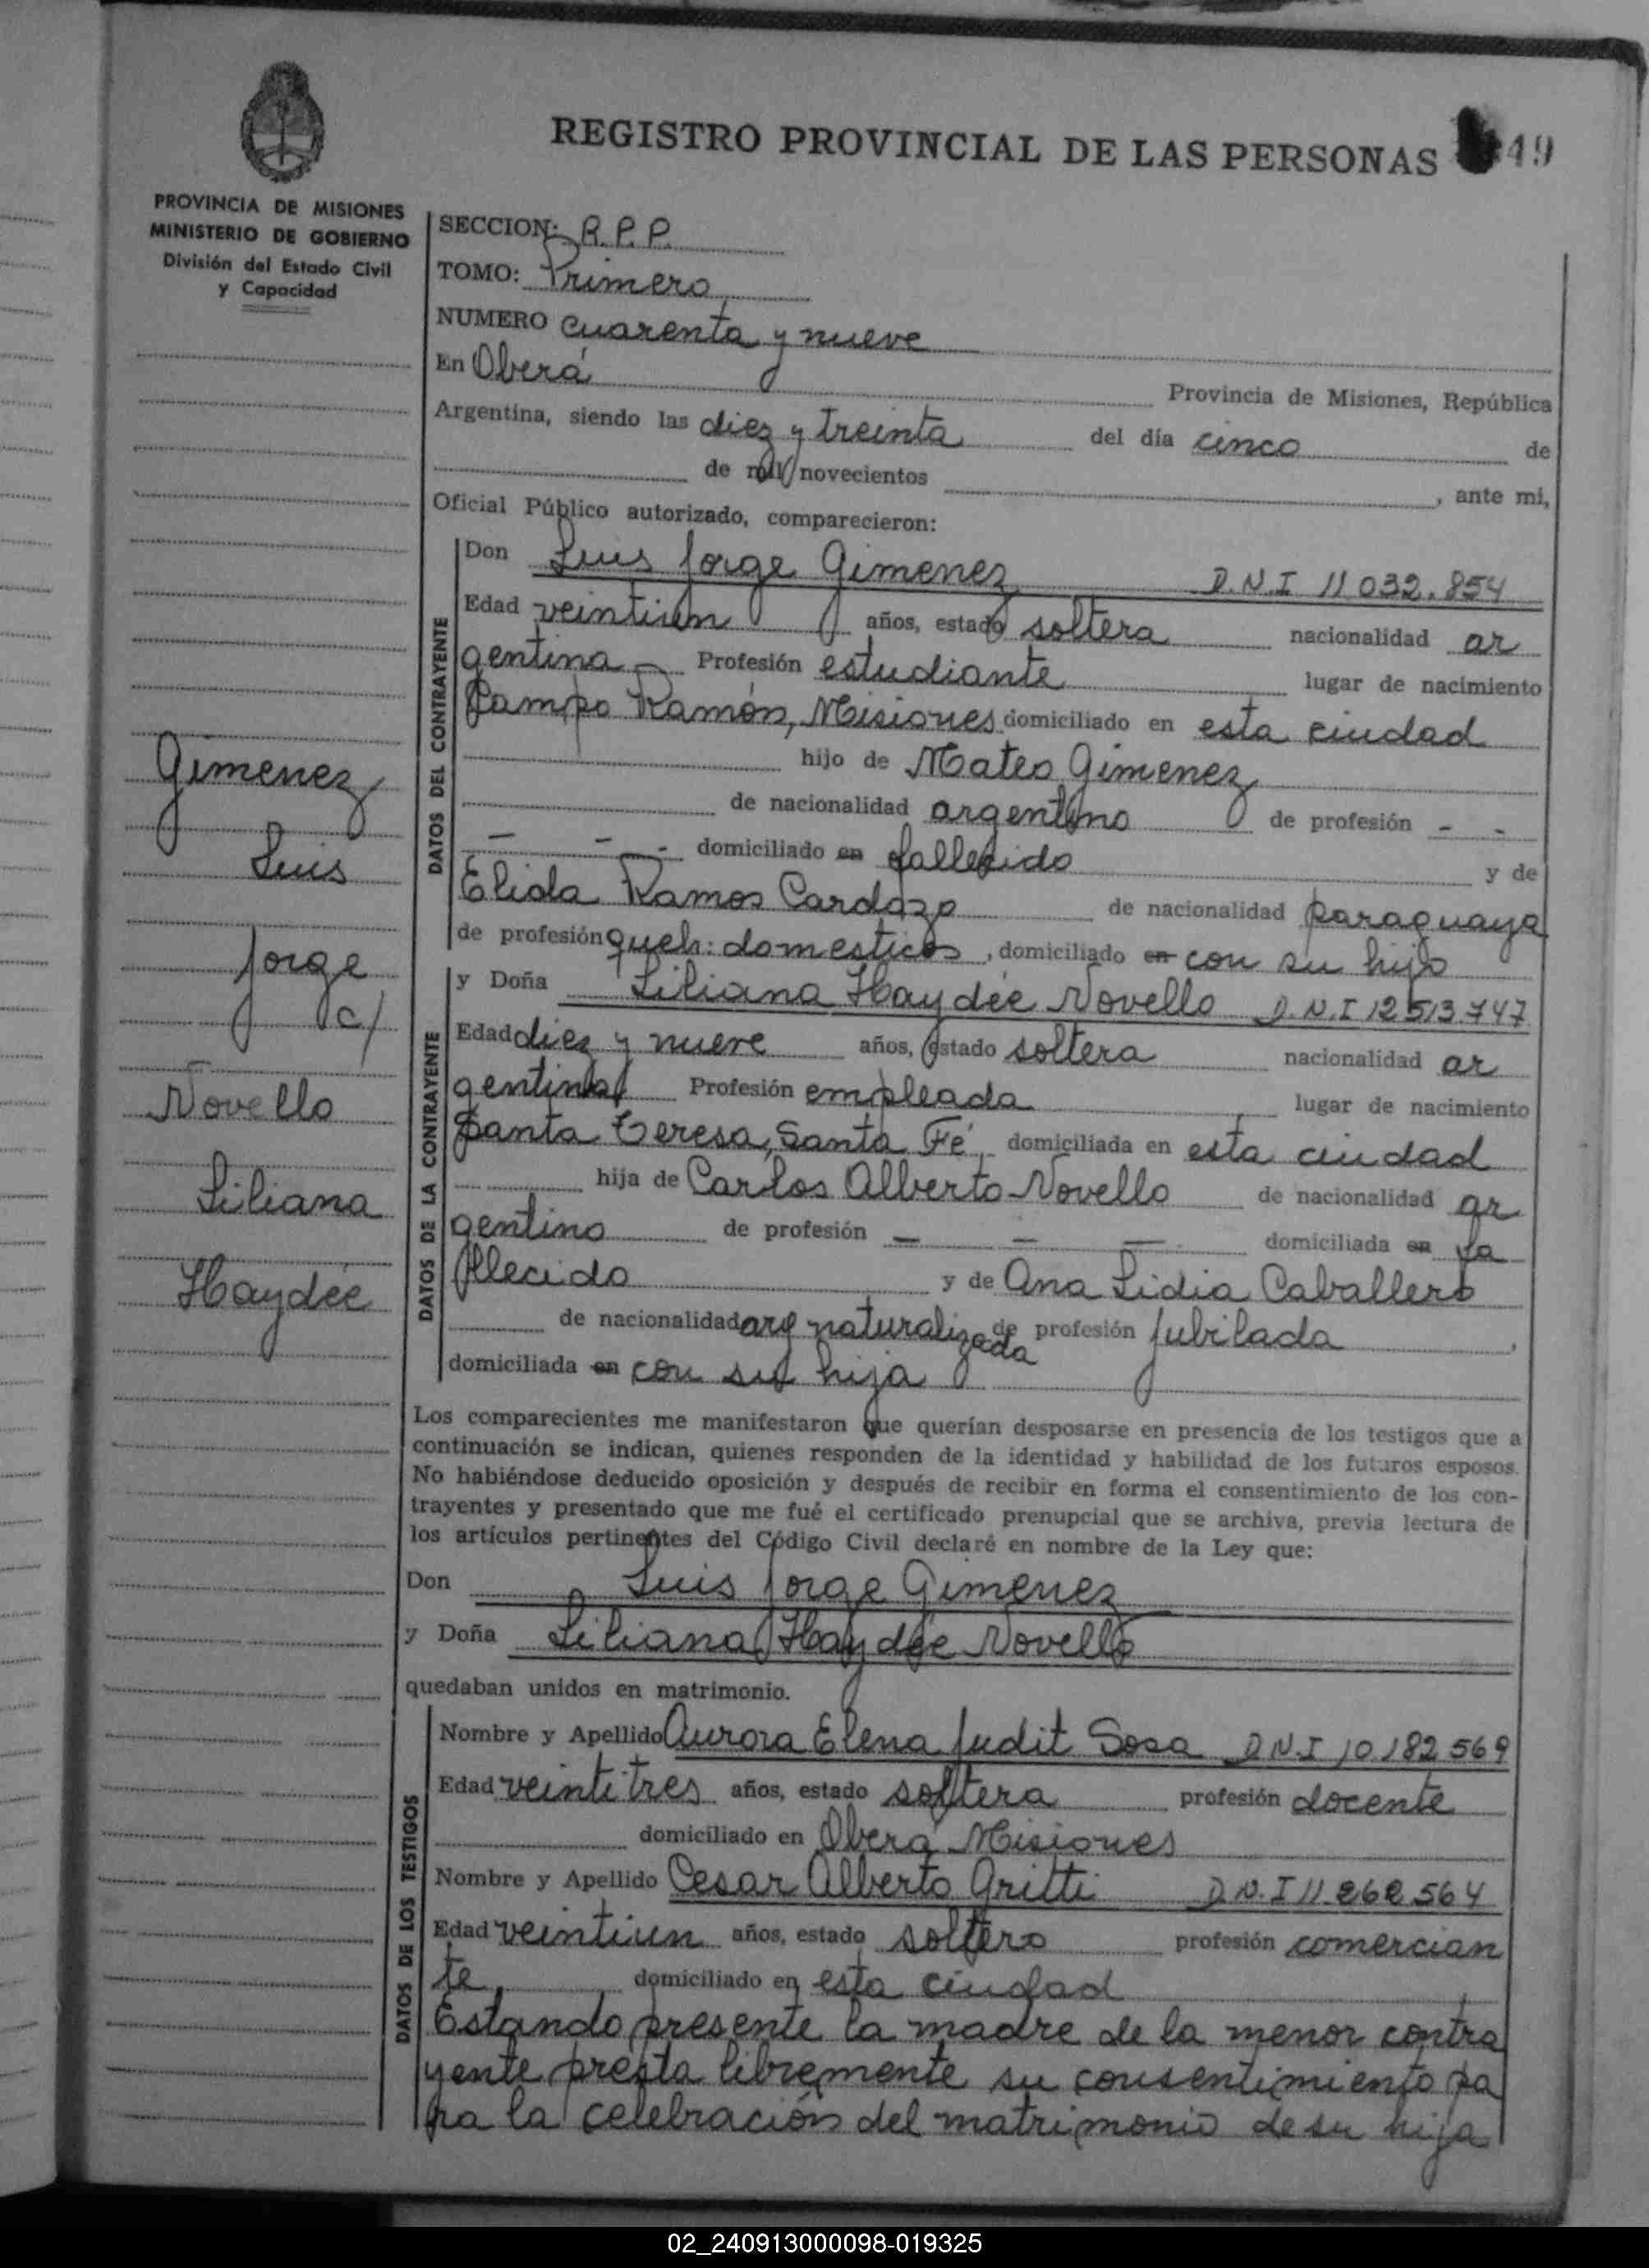 REGISTRO PROVINCIAL DE LAS PERSONAS 49
PROVINCIA DE MISIONES
MINISTERIO DE GOBIERNO
División del Estado Civil
y Capacidad
SECCION: R.P.P.
TOMO: Primero
NUMERO cuarenta y nueve
En Oberá Provincia de Misiones, República
Argentina, siendo las diez y treinta del día cinco de
de mil novecientos , ante mi,
Oficial Público autorizado, comparecieron:
DATOS DEL CONTRAYENTE
Don Luis Jorge Gimenez D.N.I 11 032.854
Edad veintiún años, estado soltera nacionalidad ar
gentina Profesión estudiante lugar de nacimiento
Campo Ramón, Misiones domiciliado en esta ciudad
hijo de Mateo Gimenez
de nacionalidad argentino de profesión - -
- - - domiciliado en fallecido y de
Elida Ramos Cardozo de nacionalidad paraguaya
de profesión queh: domesticos, domiciliado en con su hijo
DATOS DE LA CONTRAYENTE
y Doña Liliana Haydée Novello D.N.I 12 513.747
Edad diez y nueve años, estado soltera nacionalidad ar
gentina Profesión empleada lugar de nacimiento
Santa Teresa, Santa Fé domiciliada en esta ciudad
hija de Carlos Alberto Novello de nacionalidad ar
gentino de profesión - - - domiciliada en fa
llecido y de Ana Lidia Caballero
de nacionalidad arg naturalizada de profesión jubilada,
domiciliada en con su hija
Gimenez
Luis
Jorge
c/
Novello
Liliana
Haydée
Los comparecientes me manifestaron que querían desposarse en presencia de los testigos que a
continuación se indican, quienes responden de la identidad y habilidad de los futuros esposos.
No habiéndose deducido oposición y después de recibir en forma el consentimiento de los con-
trayentes y presentado que me fué el certificado prenupcial que se archiva, previa lectura de
los artículos pertinentes del Código Civil declaré en nombre de la Ley que:
Don Luis Jorge Gimenez
y Doña Liliana Haydée Novello
quedaban unidos en matrimonio.
DATOS DE LOS TESTIGOS
Nombre y Apellido Aurora Elena Judit Sosa D.N.I 10 182 569
Edad veintitres años, estado soltera profesión docente
domiciliado en Oberá Misiones
Nombre y Apellido Cesar Alberto Gritti D.N.I 11.262 564
Edad veintiun años, estado soltero profesión comercian
te domiciliado en esta ciudad
Estando presente la madre de la menor contra
yente presta libremente su consentimiento pa
ra la celebración del matrimonio de su hija
02_240913000098-019325